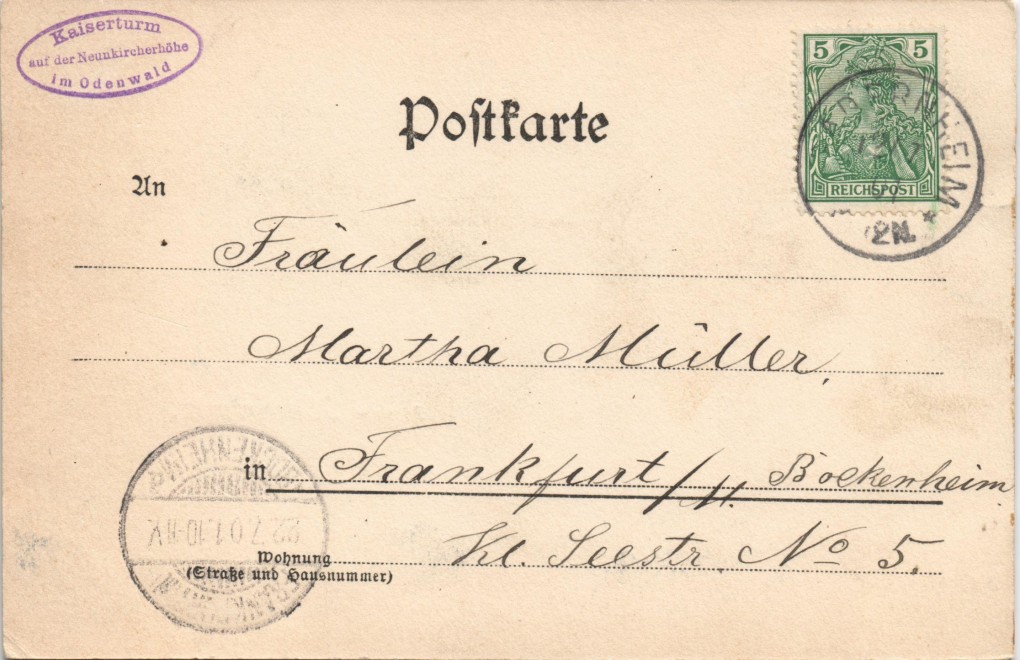 Kaiserturm
auf der Neunkircherhöhe
im Odenwald
5 5
REICHSPOST
2N.
Postkarte
An
Fräulein
Martha Müller,
in Frankfurt/M. Bockenheim
Wohnung
(Straße und Hausnummer)
Kl. Seestr. No 5.
22.7.01.10-11V.